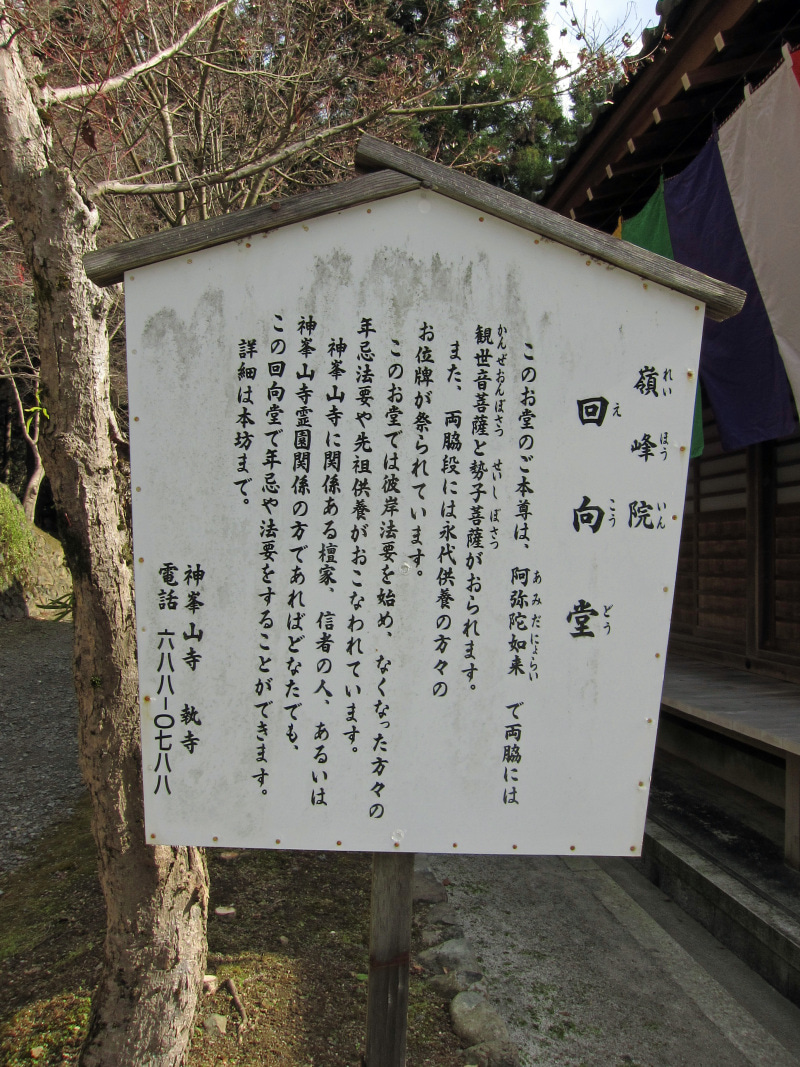 嶺峰院
れいほういん
回向堂
えこうどう
このお堂のご本尊は、阿弥陀如来で両脇には
あみだにょらい
観世音菩薩と勢子菩薩がおられます。
かんぜおんぼさつ せいしぼさつ
また、両脇段には永代供養の方々の
お位牌が祭られています。
このお堂では彼岸法要を始め、なくなった方々の
年忌法要や先祖供養がおこなわれています。
神峯山寺に関係ある檀家、信者の人、あるいは
神峯山寺霊園関係の方であればどなたでも、
この回向堂で年忌や法要をすることができます。
詳細は本坊まで。
神峯山寺 執寺
電話 六八八-〇七八八